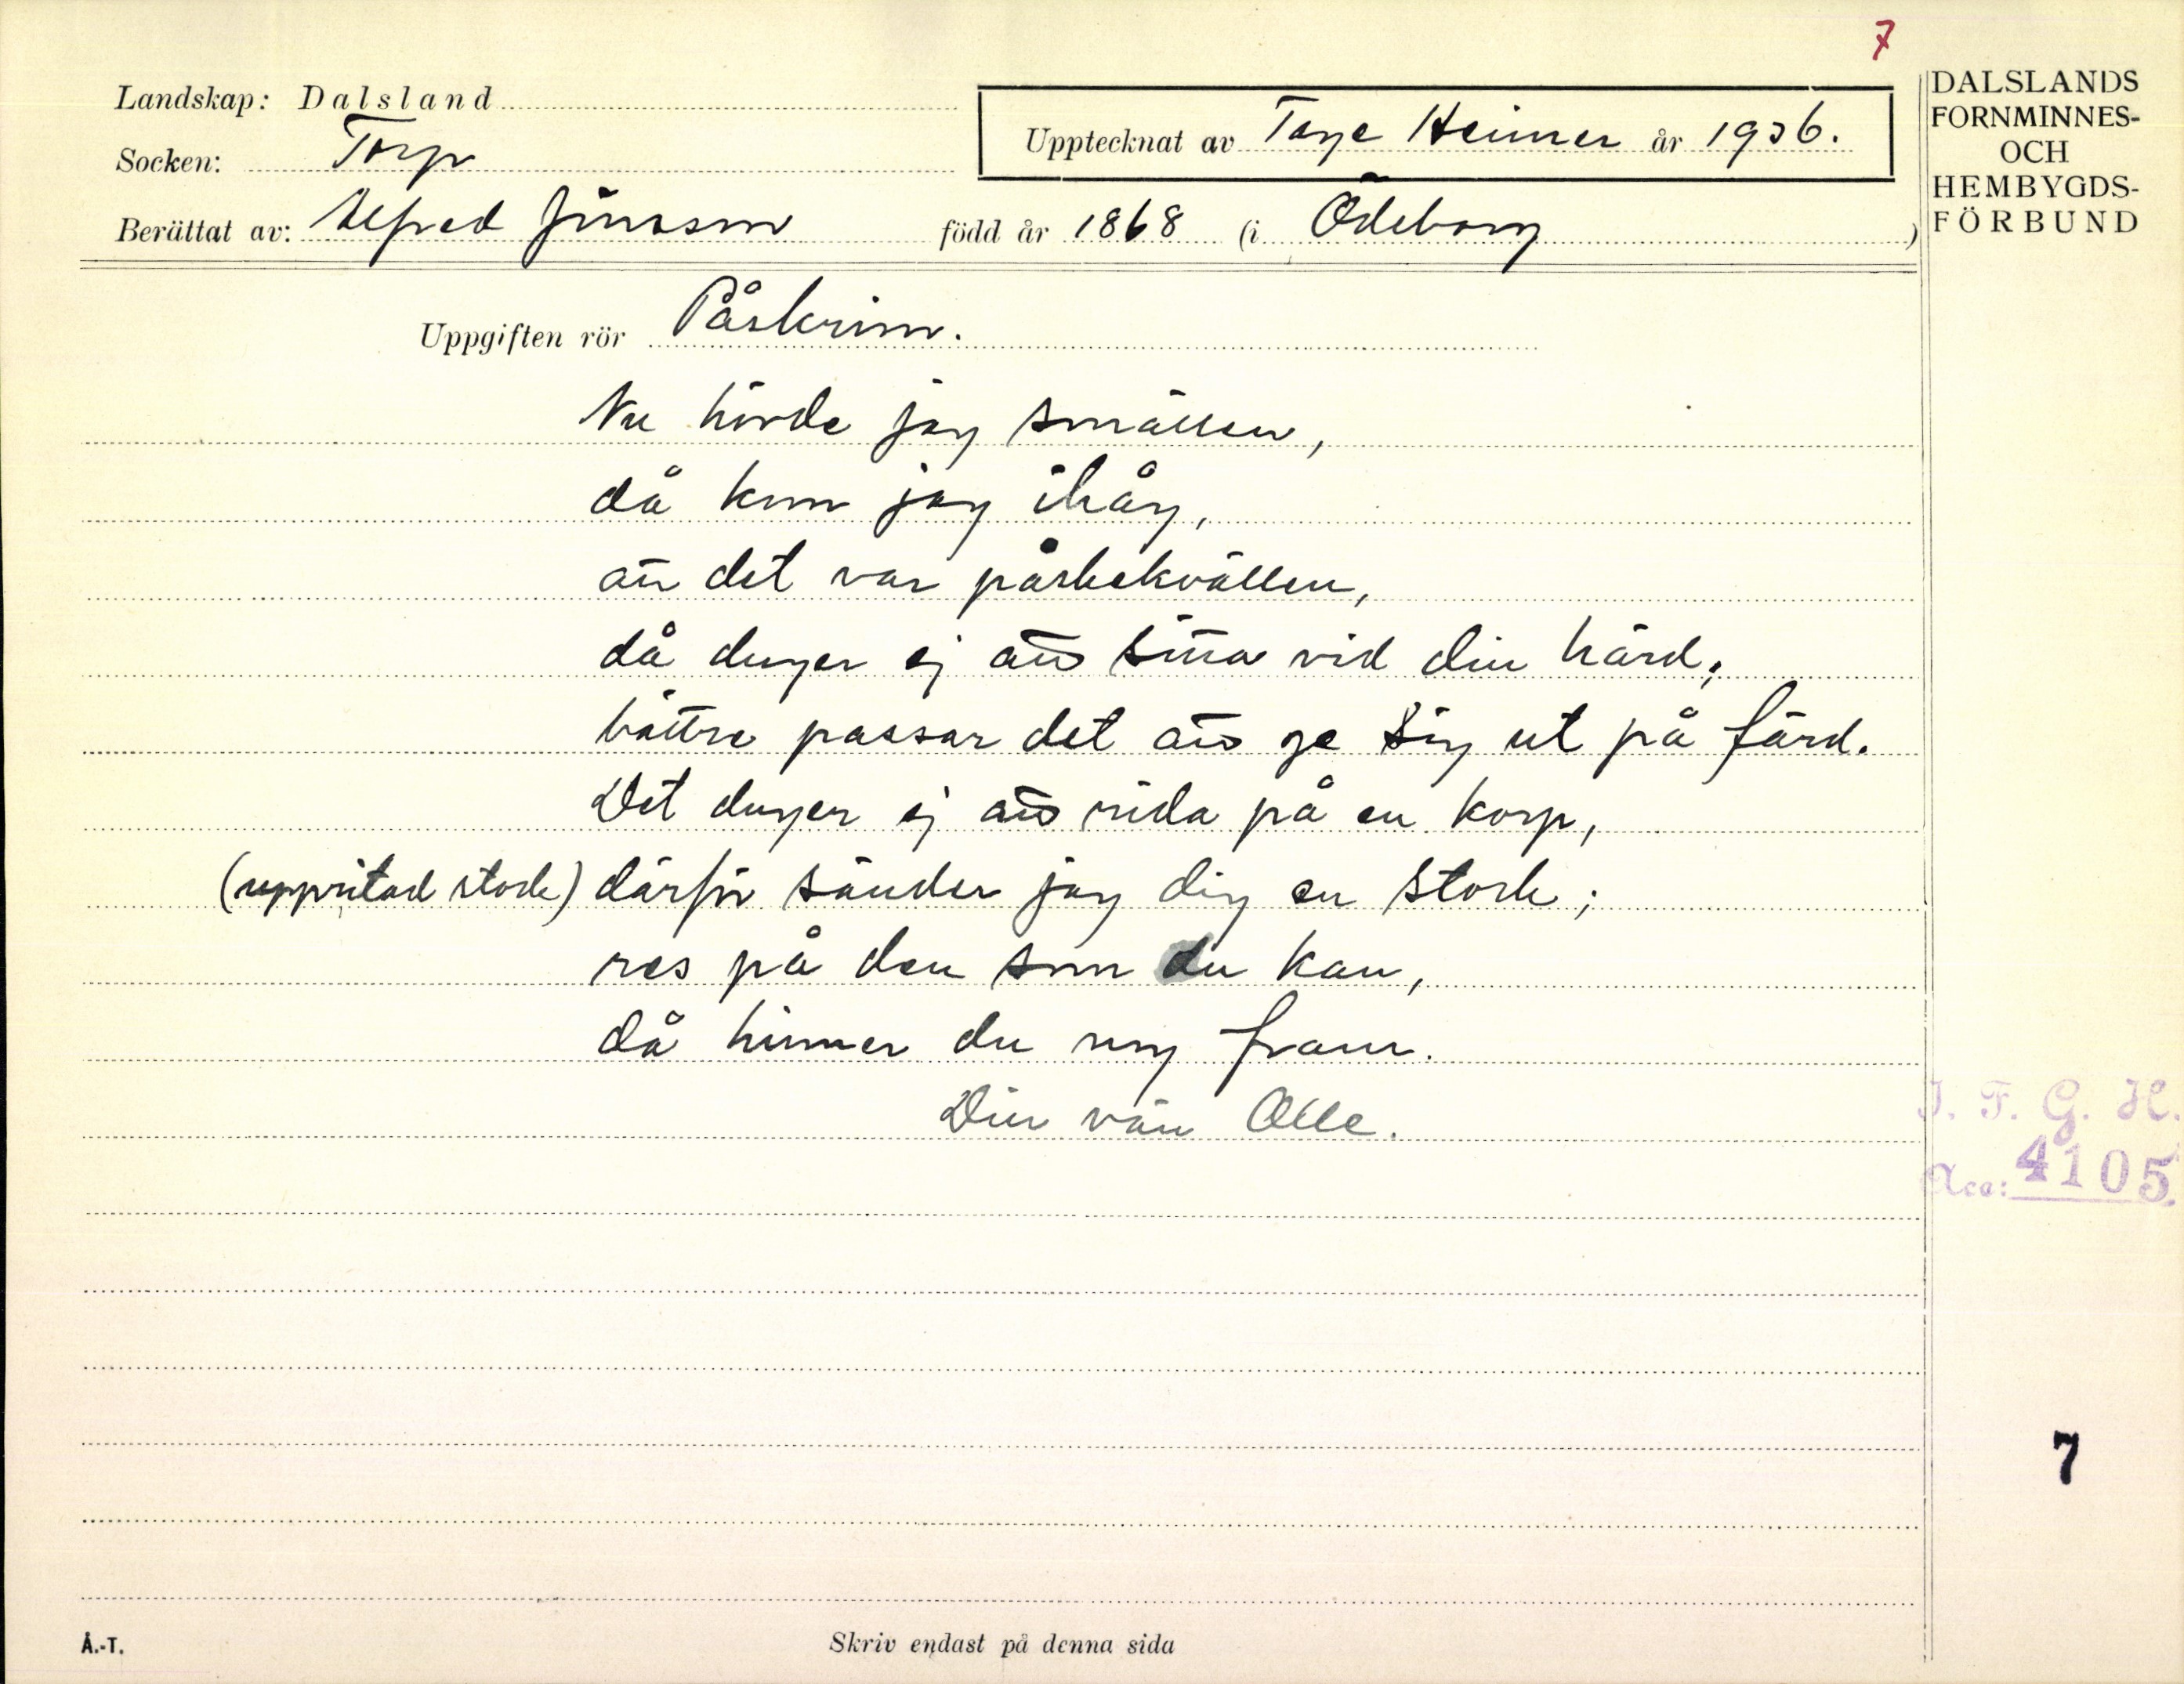 7
Landskap: Dalsland
Socken: Torp
Upptecknat av Tage Heimer år 1936.
Berättat av: Alfred Jönsson född år 1868 (i Ödeborg)
DALSLANDS
FORNMINNES-
OCH
HEMBYGDS-
FÖRBUND
Uppgiften rör Påskrim.
Nu hörde jag smällen,
då kom jag ihåg,
att det var påskekvällen,
då duger ej att sitta vid din härd,
bättre passar det att ge sig ut på färd.
Det duger ej att rida på en korp,
(uppritad stork) därför sänder jag dig en stork;
res på den som du kan,
då hinner du nog fram.
Din vän Olle.
I. F. G. H.
Acc: 4105.
7
Å.-T.
Skriv endast på denna sida